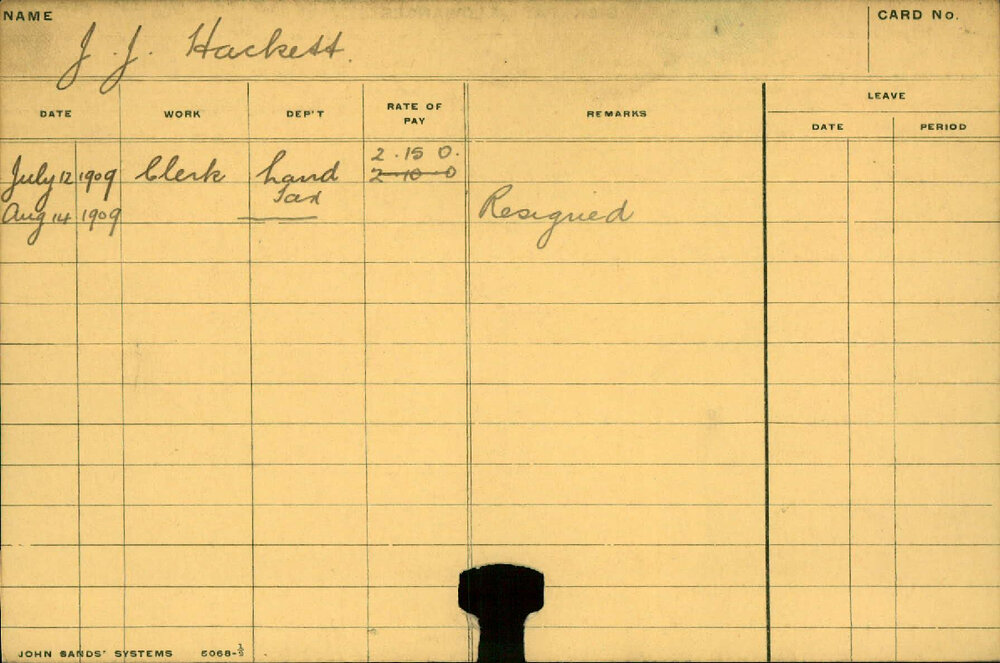 NAME
J. J. Hackett.
CARD No.
DATE WORK DEP'T RATE OF PAY REMARKS LEAVE
DATE PERIOD
2. 15 0.
July 12 1909 Clerk Land 2 10 0
Tax
Aug 14 1909 Resigned
JOHN SANDS' SYSTEMS 5068-